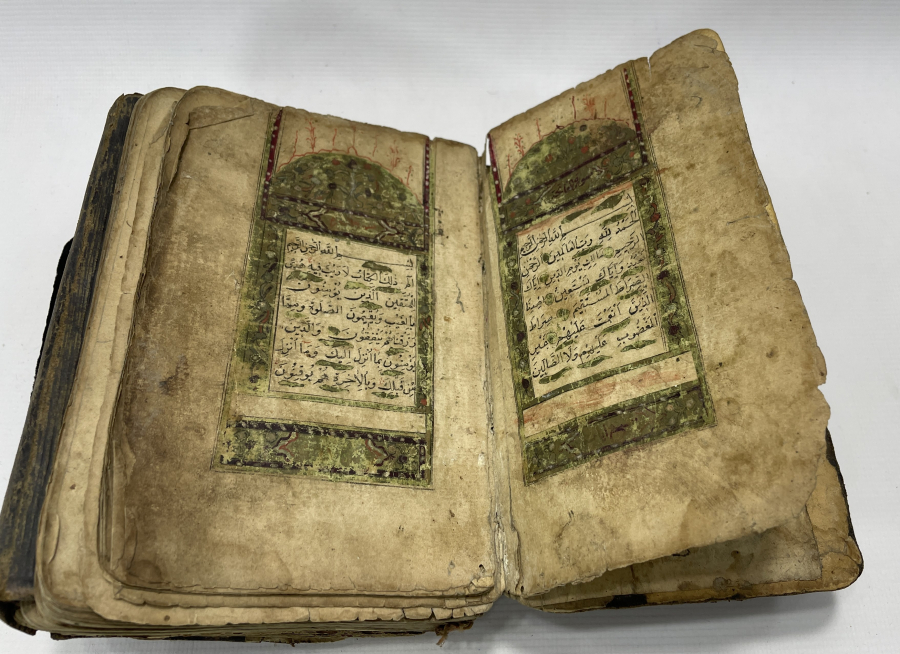 بسم الله الرحمن الرحيم
الحمد لله رب العالمين الرحمن
الرحيم مالك يوم الدين اياك
نعبد واياك نستعين اهدنا
الصراط المستقيم صراط
الذين انعمت عليهم غير
المغضوب عليهم ولا الضالين
بسم الله الرحمن الرحيم
الم ذلك الكتاب لا ريب فيه هدى
للمتقين الذين يؤمنون
بالغيب ويقيمون الصلوة ومما
رزقناهم ينفقون والذين
يؤمنون بما انزل اليك وما انزل
من قبلك وبالاخرة هم يوقنون